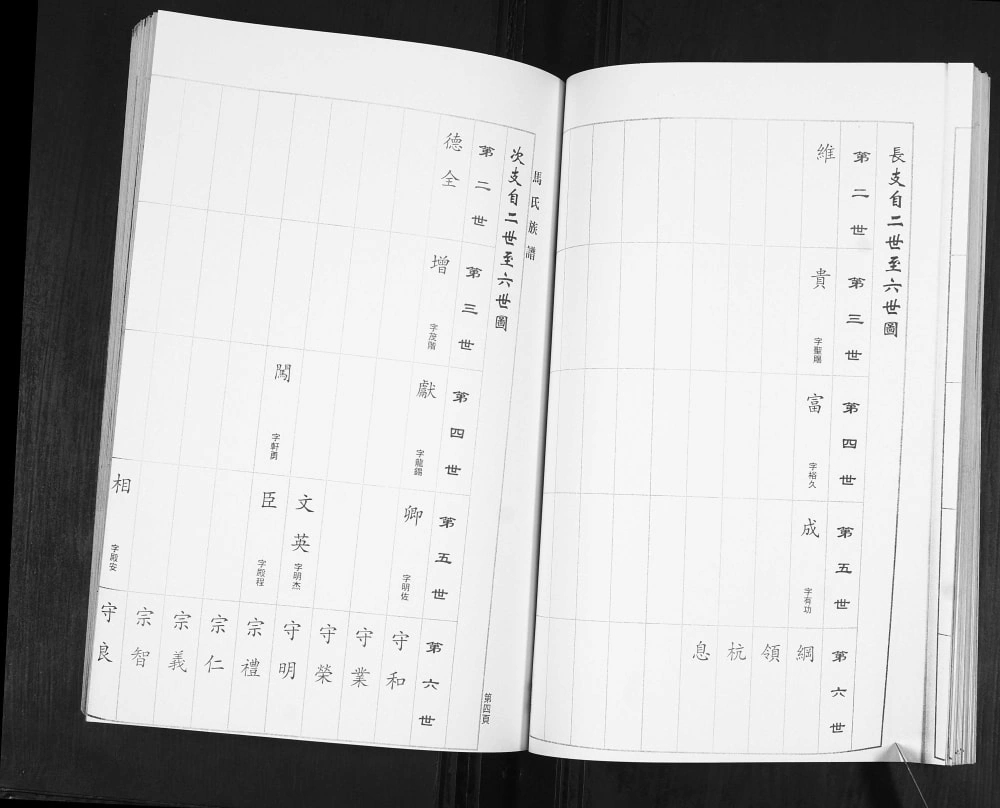 長支自二世至六世圖
第二世
維
第三世
貴
字聖賜
第四世
富
字裕久
第五世
成
字有功
第六世
綱
領
杭
息
馬氏族譜
次支自二世至六世圖
第四頁
第二世
德全
第三世
增
字茂階
第四世
獻
字龍錫
闖
字軒勇
第五世
卿
字明佐
文英
字明杰
臣
字殿程
相
字殿安
第六世
守和
守業
守榮
守明
宗禮
宗仁
宗義
宗智
守良